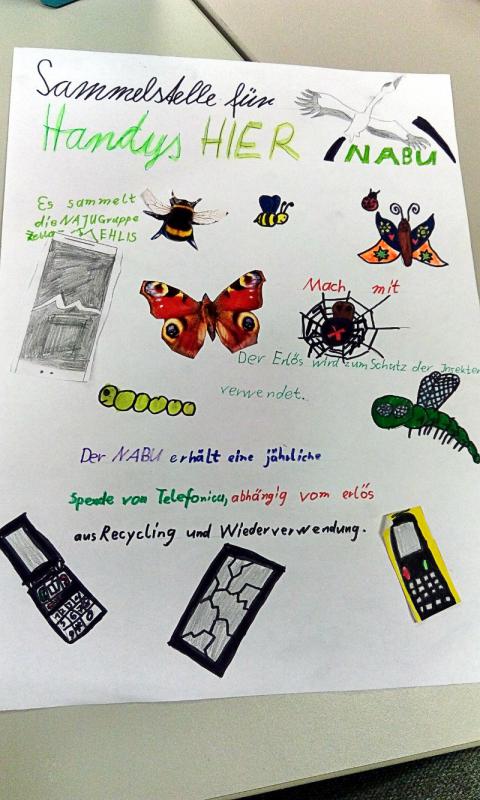 Sammelstelle für
Handys HIER
NABU
Es sammelt
die NAJUGruppe
Zella-MEHLIS
Mach mit
Der Erlös wird zum Schutz der Insekten
verwendet.
Der NABU erhält eine jährliche
Spende von Telefonica, abhängig vom erlös
aus Recycling und Wiederverwendung.